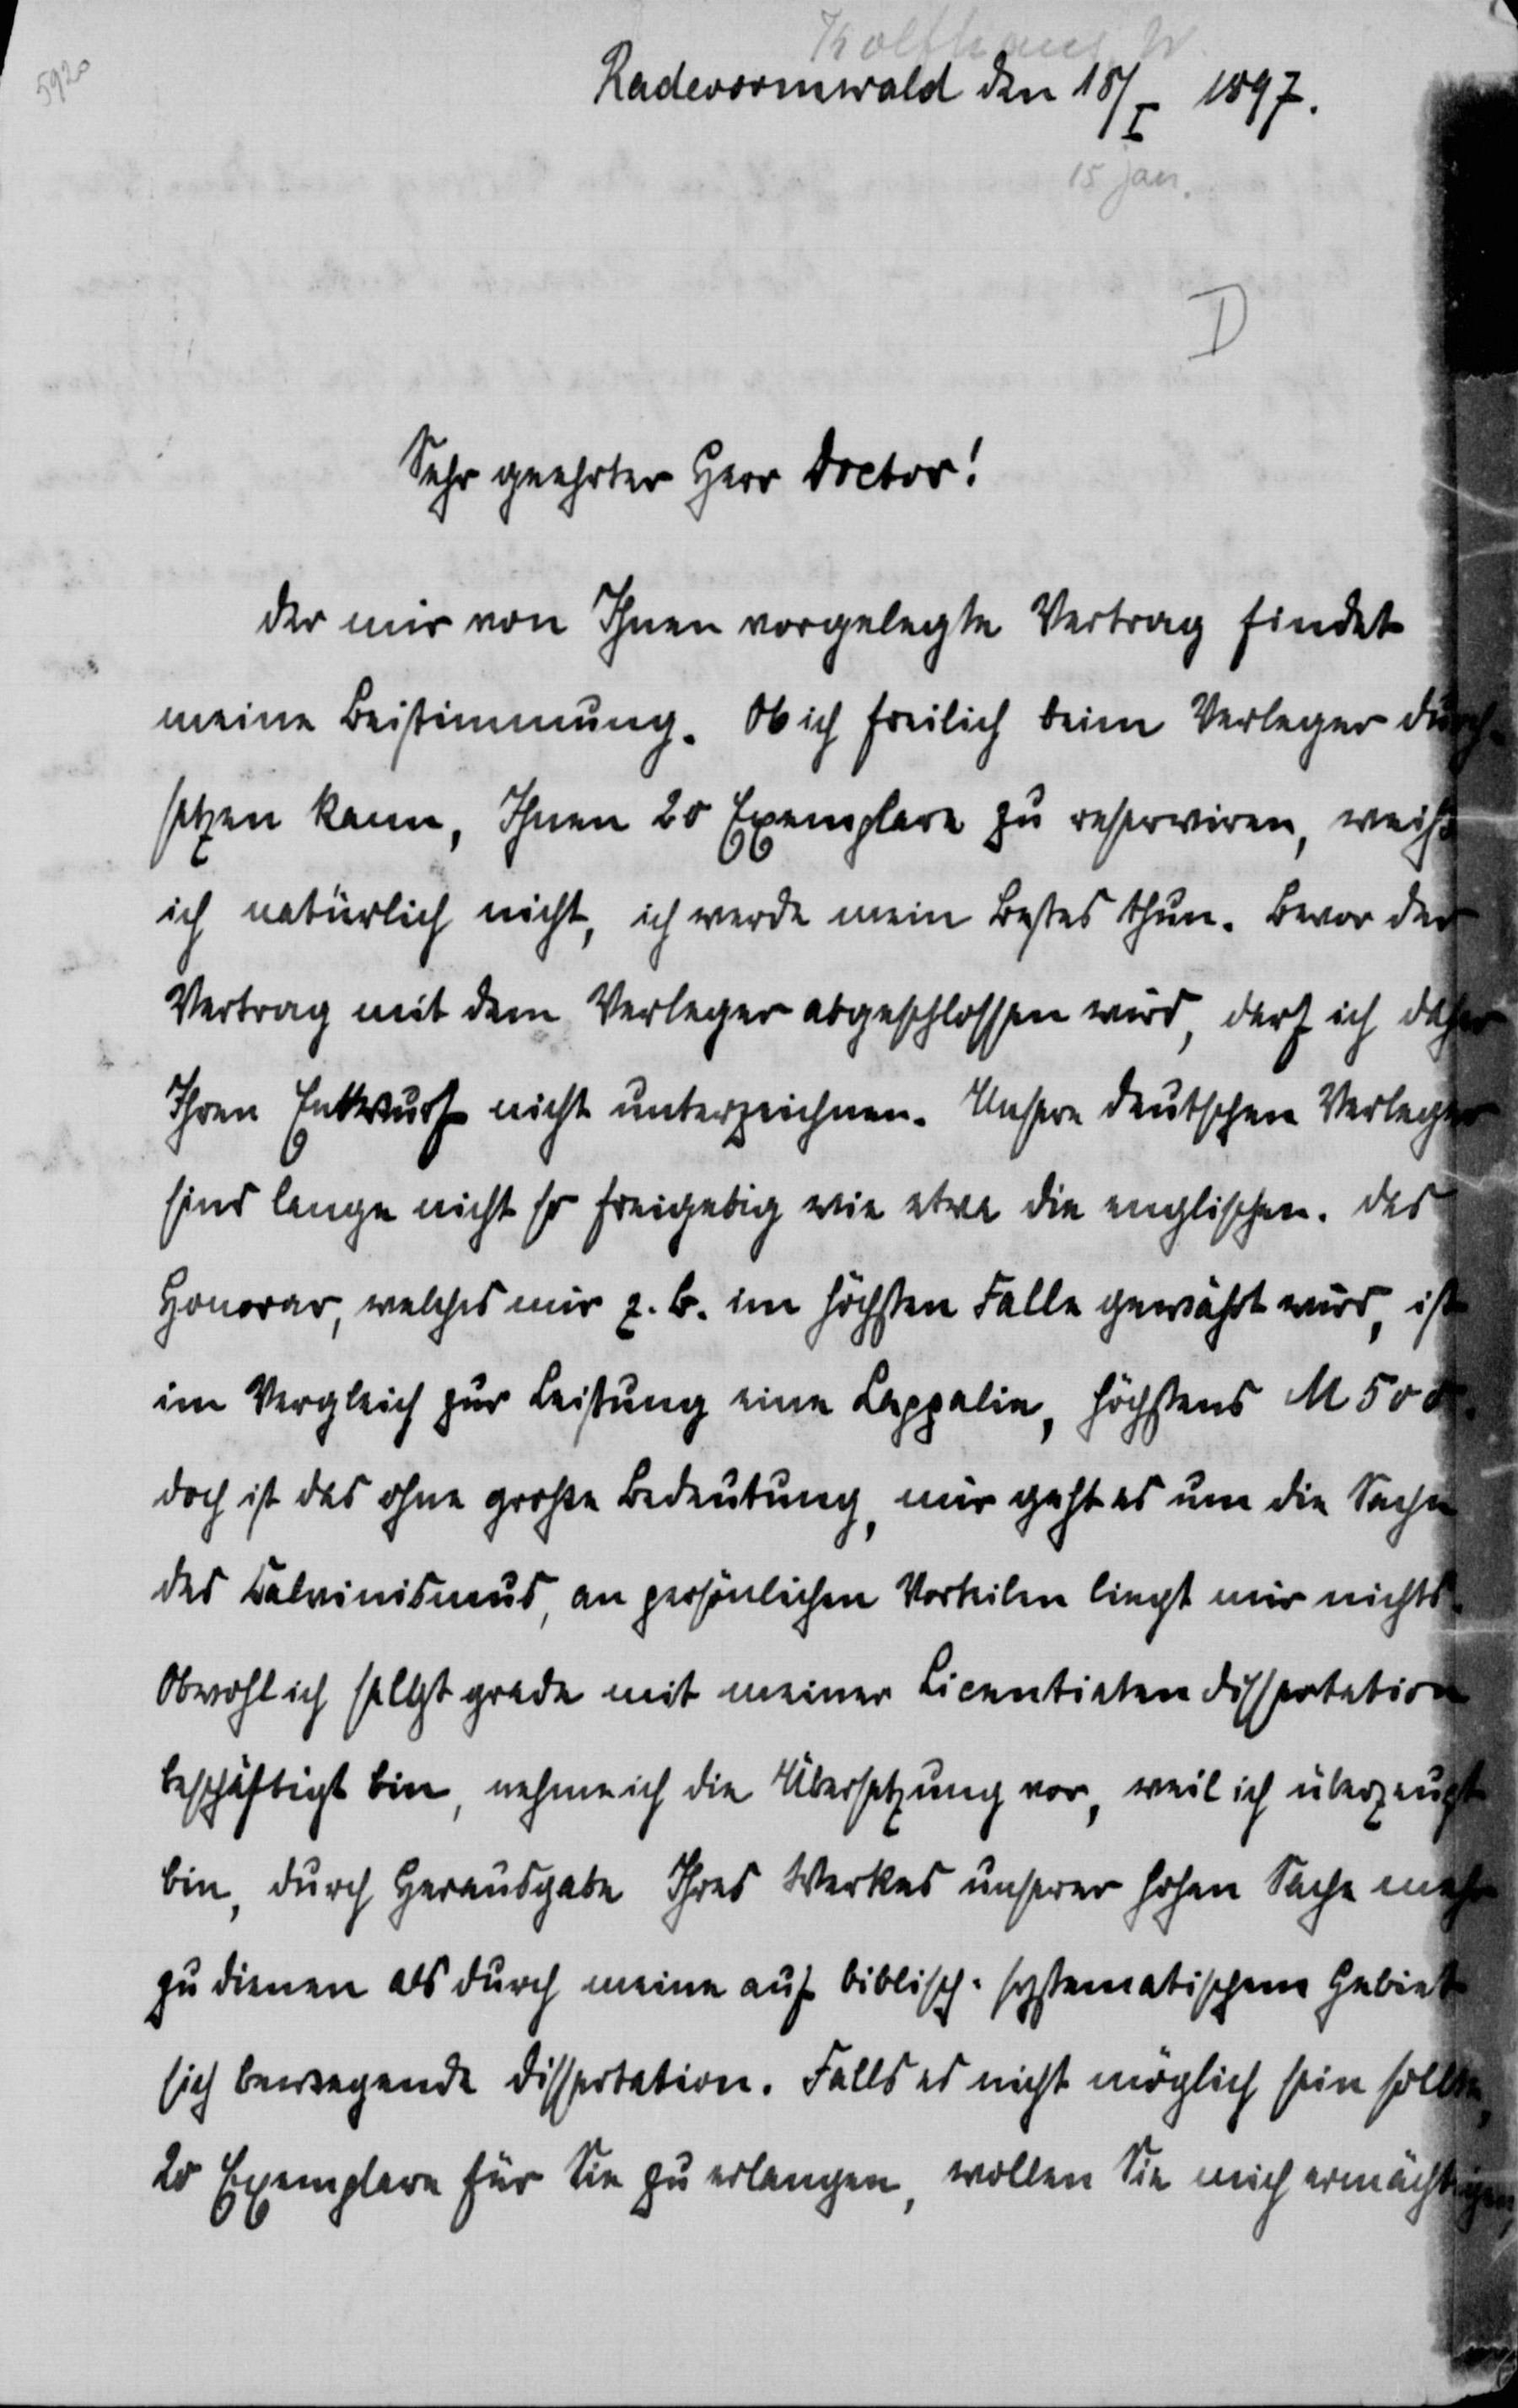 5920
Kolfhaus, W.
Radevormwald den 18/I 1897.
15 jan.
D
Sehr geehrter Herr Doctor!
der mir von Ihnen vorgelegte Vertrag findet
meine Beistimmung. Ob ich freilich beim Verleger durch-
setzen kann, Ihnen 20 Exemplare zu reserviren, weiß
ich natürlich nicht, ich werde mein Bestes thun. Bevor der
Vertrag mit dem Verleger abgeschlossen wird, darf ich daher
Ihren Entwurf nicht unterzeichnen. Unsere deutschen Verleger
sind lange nicht so freigebig wie etwa die englischen. Das
Honorar, welches mir z. B. im höchsten Falle gewährt wird, ist
im Vergleich zur Leistung eine Lappalie, höchstens M 500.
doch ist das ohne große Bedeutung, mir geht es um die Sache
des Calvinismus, an persönlichen Vorteilen liegt mir nichts.
Obwohl ich selbst grade mit meiner Licentiatendissertation
beschäftigt bin, nehme ich die Übersetzung vor, weil ich überzeugt
bin, durch Herausgabe Ihres Werkes unserer hohen Sache mehr
zu dienen als durch meine auf biblisch-systematischem Gebiet
sich bewegende Dissertation. Falls es nicht möglich sein sollte,
20 Exemplare für Sie zu erlangen, wollen Sie mich ermächtigen,